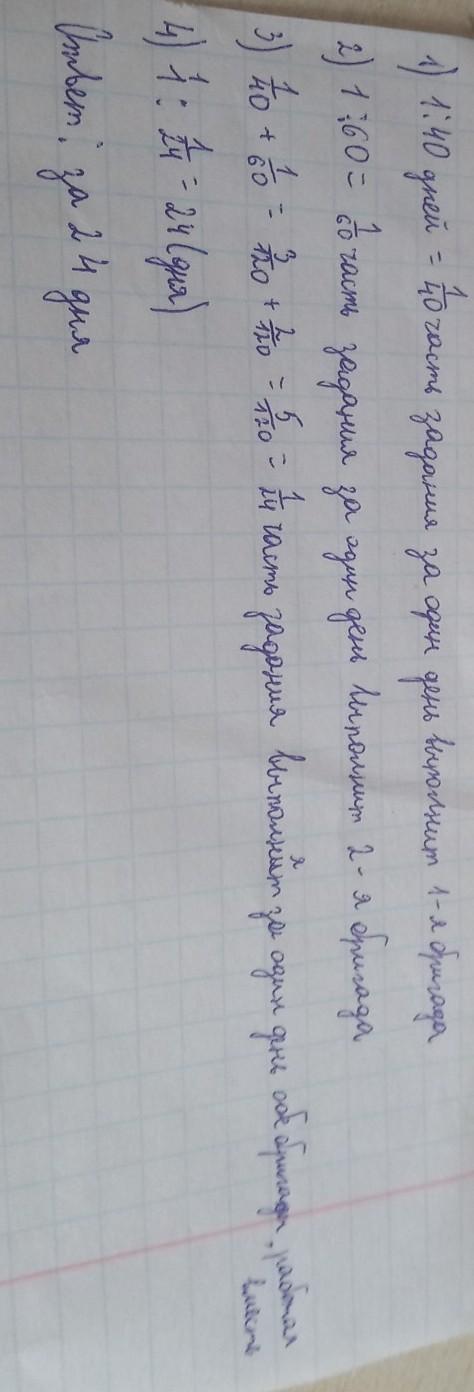 1) 1:40 дней = 1/40 часть задания за один день выполнит 1-я бригада
2) 1:60 = 1/60 часть задания за один день выполнит 2-я бригада
3) 1/40 + 1/60 = 3/120 + 2/120 = 5/120 = 1/24 часть задания выполнят за один день обе бригады, работая
вместе
4) 1 : 1/24 = 24 (дня)
Ответ: за 24 дня